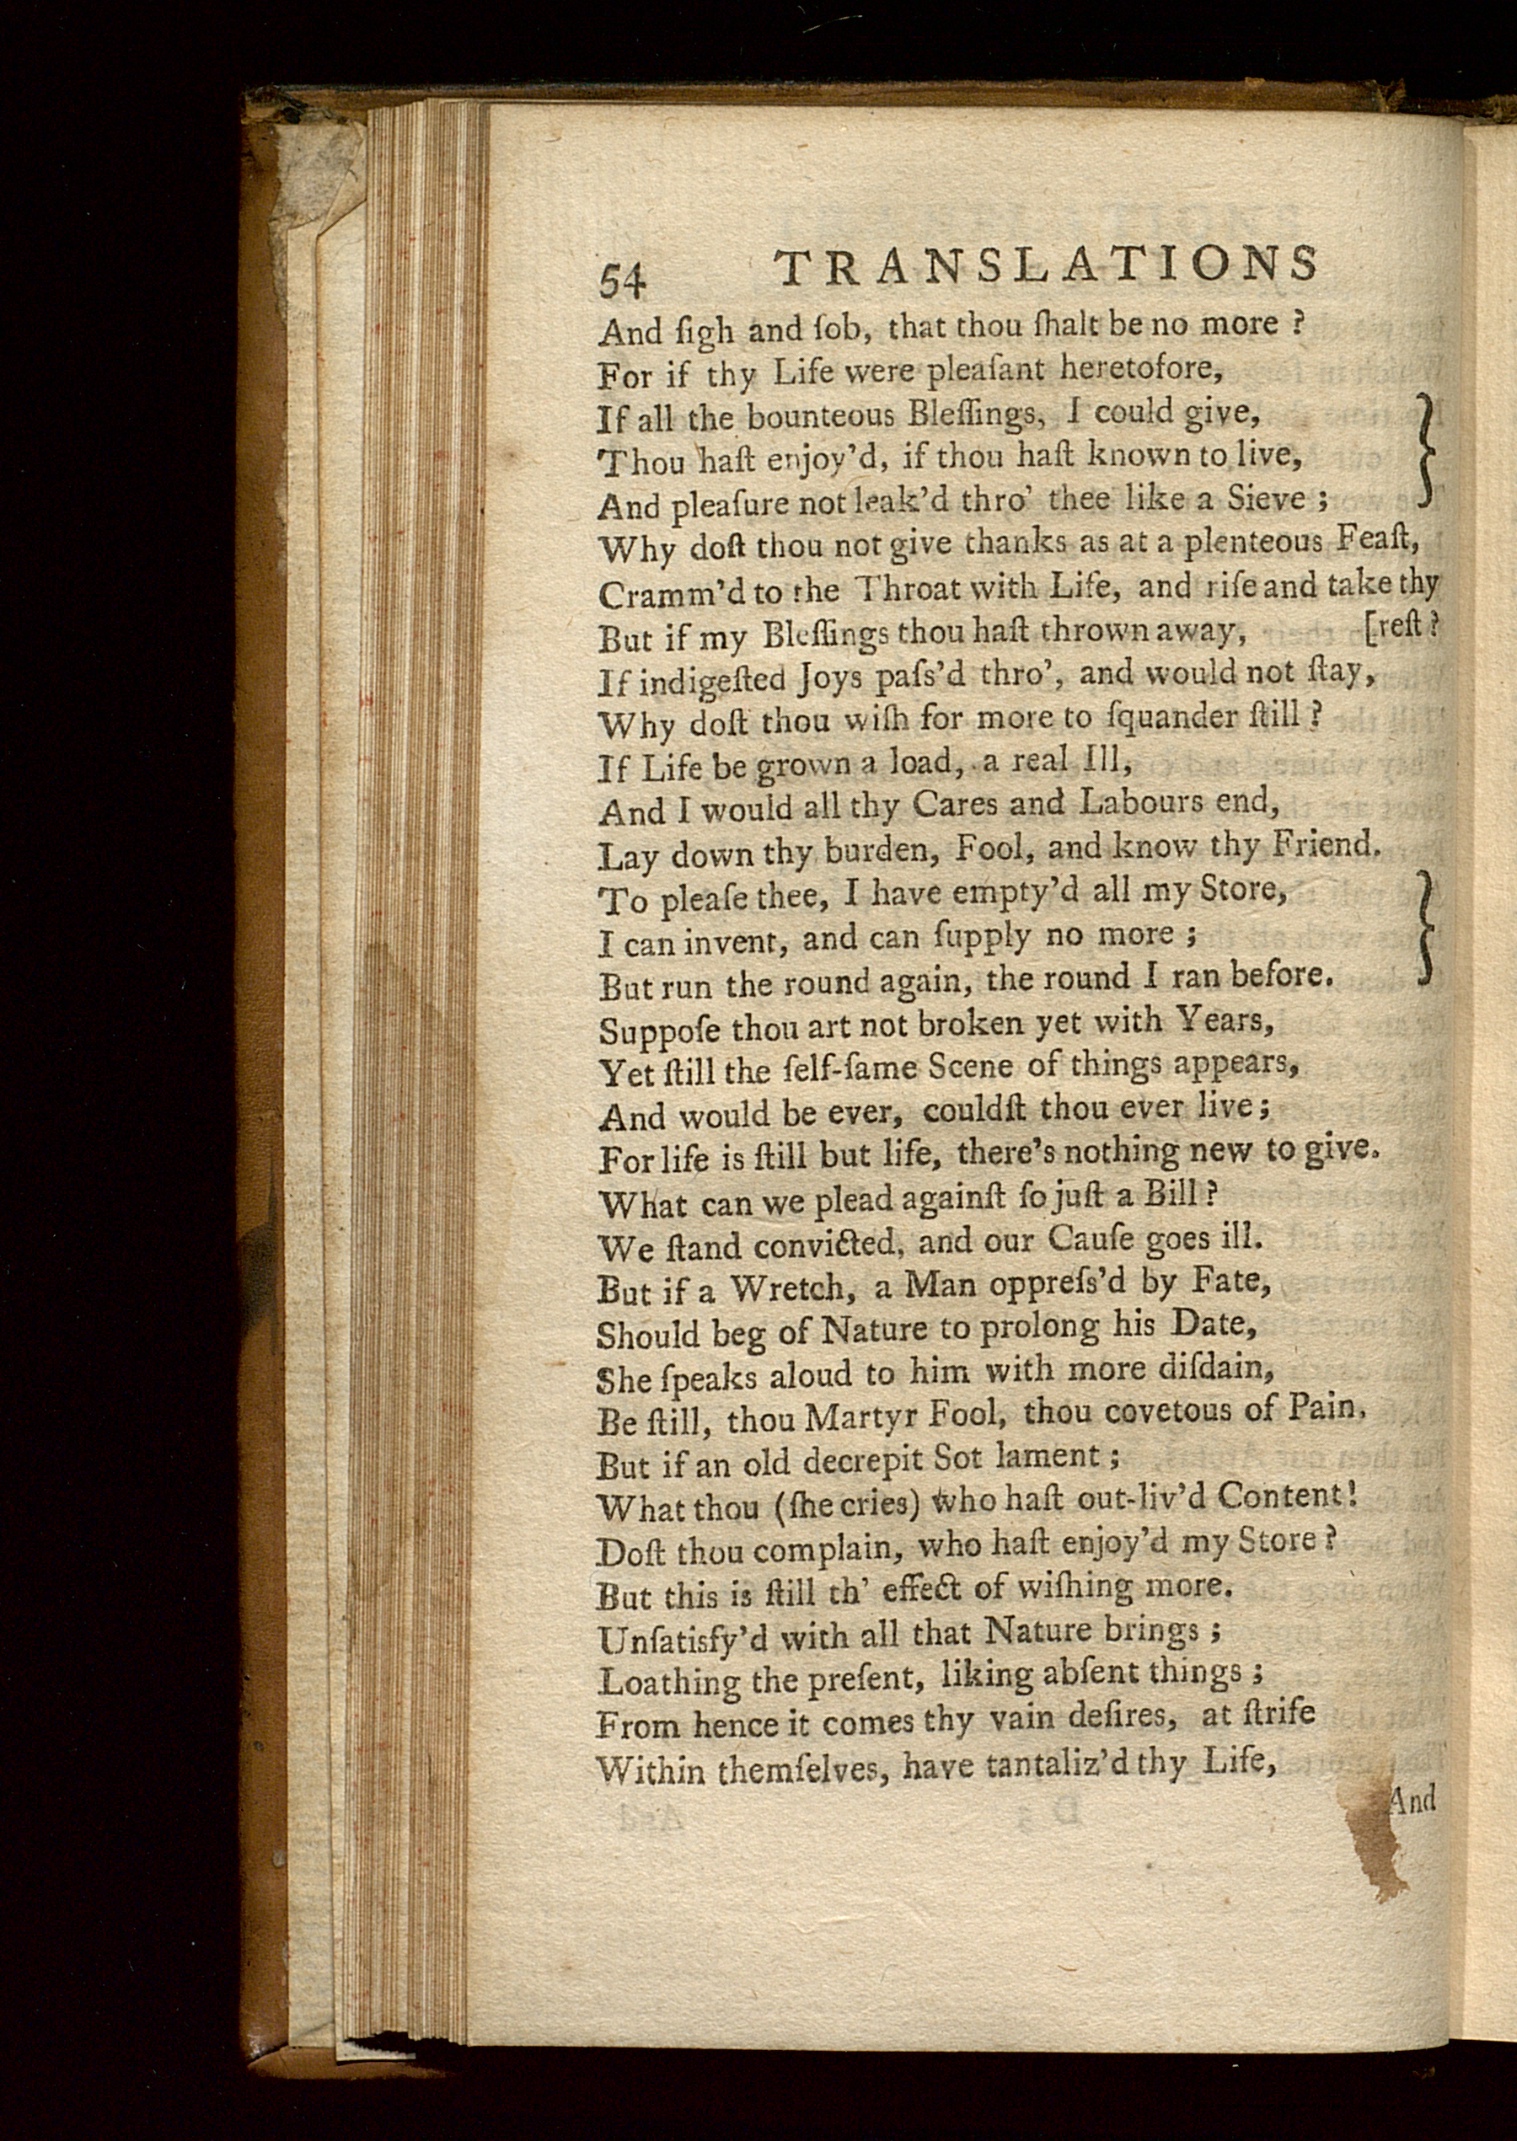 54 TRANSLATIONS
And ſigh and ſob, that thou ſhalt be no more ?
For if thy Life were pleaſant heretofore,
If all the bounteous Bleſſings, I could give,
Thou haſt enjoy'd, if thou haſt known to live,
And pleaſure not leak'd thro' thee like a Sieve ;
Why doſt thou not give thanks as at a plenteous Feaſt,
Cramm'd to the Throat with Life, and riſe and take thy
But if my Bleſſings thou haſt thrown away, [reſt ?
If indigeſted Joys paſs'd thro', and would not ſtay,
Why doſt thou wiſh for more to ſquander ſtill ?
If Life be grown a load, a real Ill,
And I would all thy Cares and Labours end,
Lay down thy burden, Fool, and know thy Friend.
To pleaſe thee, I have empty'd all my Store,
I can invent, and can ſupply no more ;
But run the round again, the round I ran before.
Suppoſe thou art not broken yet with Years,
Yet ſtill the ſelf-ſame Scene of things appears,
And would be ever, couldſt thou ever live;
For life is ſtill but life, there's nothing new to give.
What can we plead againſt ſo juſt a Bill ?
We ſtand convicted, and our Cauſe goes ill.
But if a Wretch, a Man oppreſs'd by Fate,
Should beg of Nature to prolong his Date,
She ſpeaks aloud to him with more diſdain,
Be ſtill, thou Martyr Fool, thou covetous of Pain.
But if an old decrepit Sot lament ;
What thou (ſhe cries) who haſt out-liv'd Content!
Doſt thou complain, who haſt enjoy'd my Store ?
But this is ſtill th' effect of wiſhing more.
Unſatisfy'd with all that Nature brings ;
Loathing the preſent, liking abſent things ;
From hence it comes thy vain deſires, at ſtrife
Within themſelves, have tantaliz'd thy Life,
And